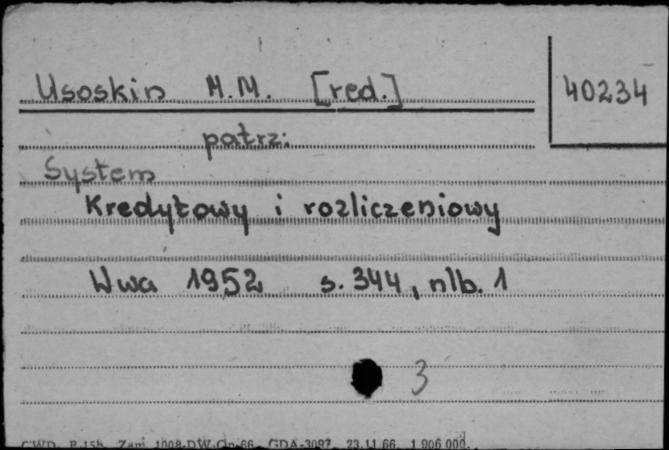 Usoskin M.M. [red.]
40234
patrz:
System
Kredytowy i rozliczeniowy
Wwa 1952 s. 344, nlb. 1
3
CWD P-15h. Zam. 1008-DW.Op-66. GDA-3097. 23.11.66. 1 906 000.